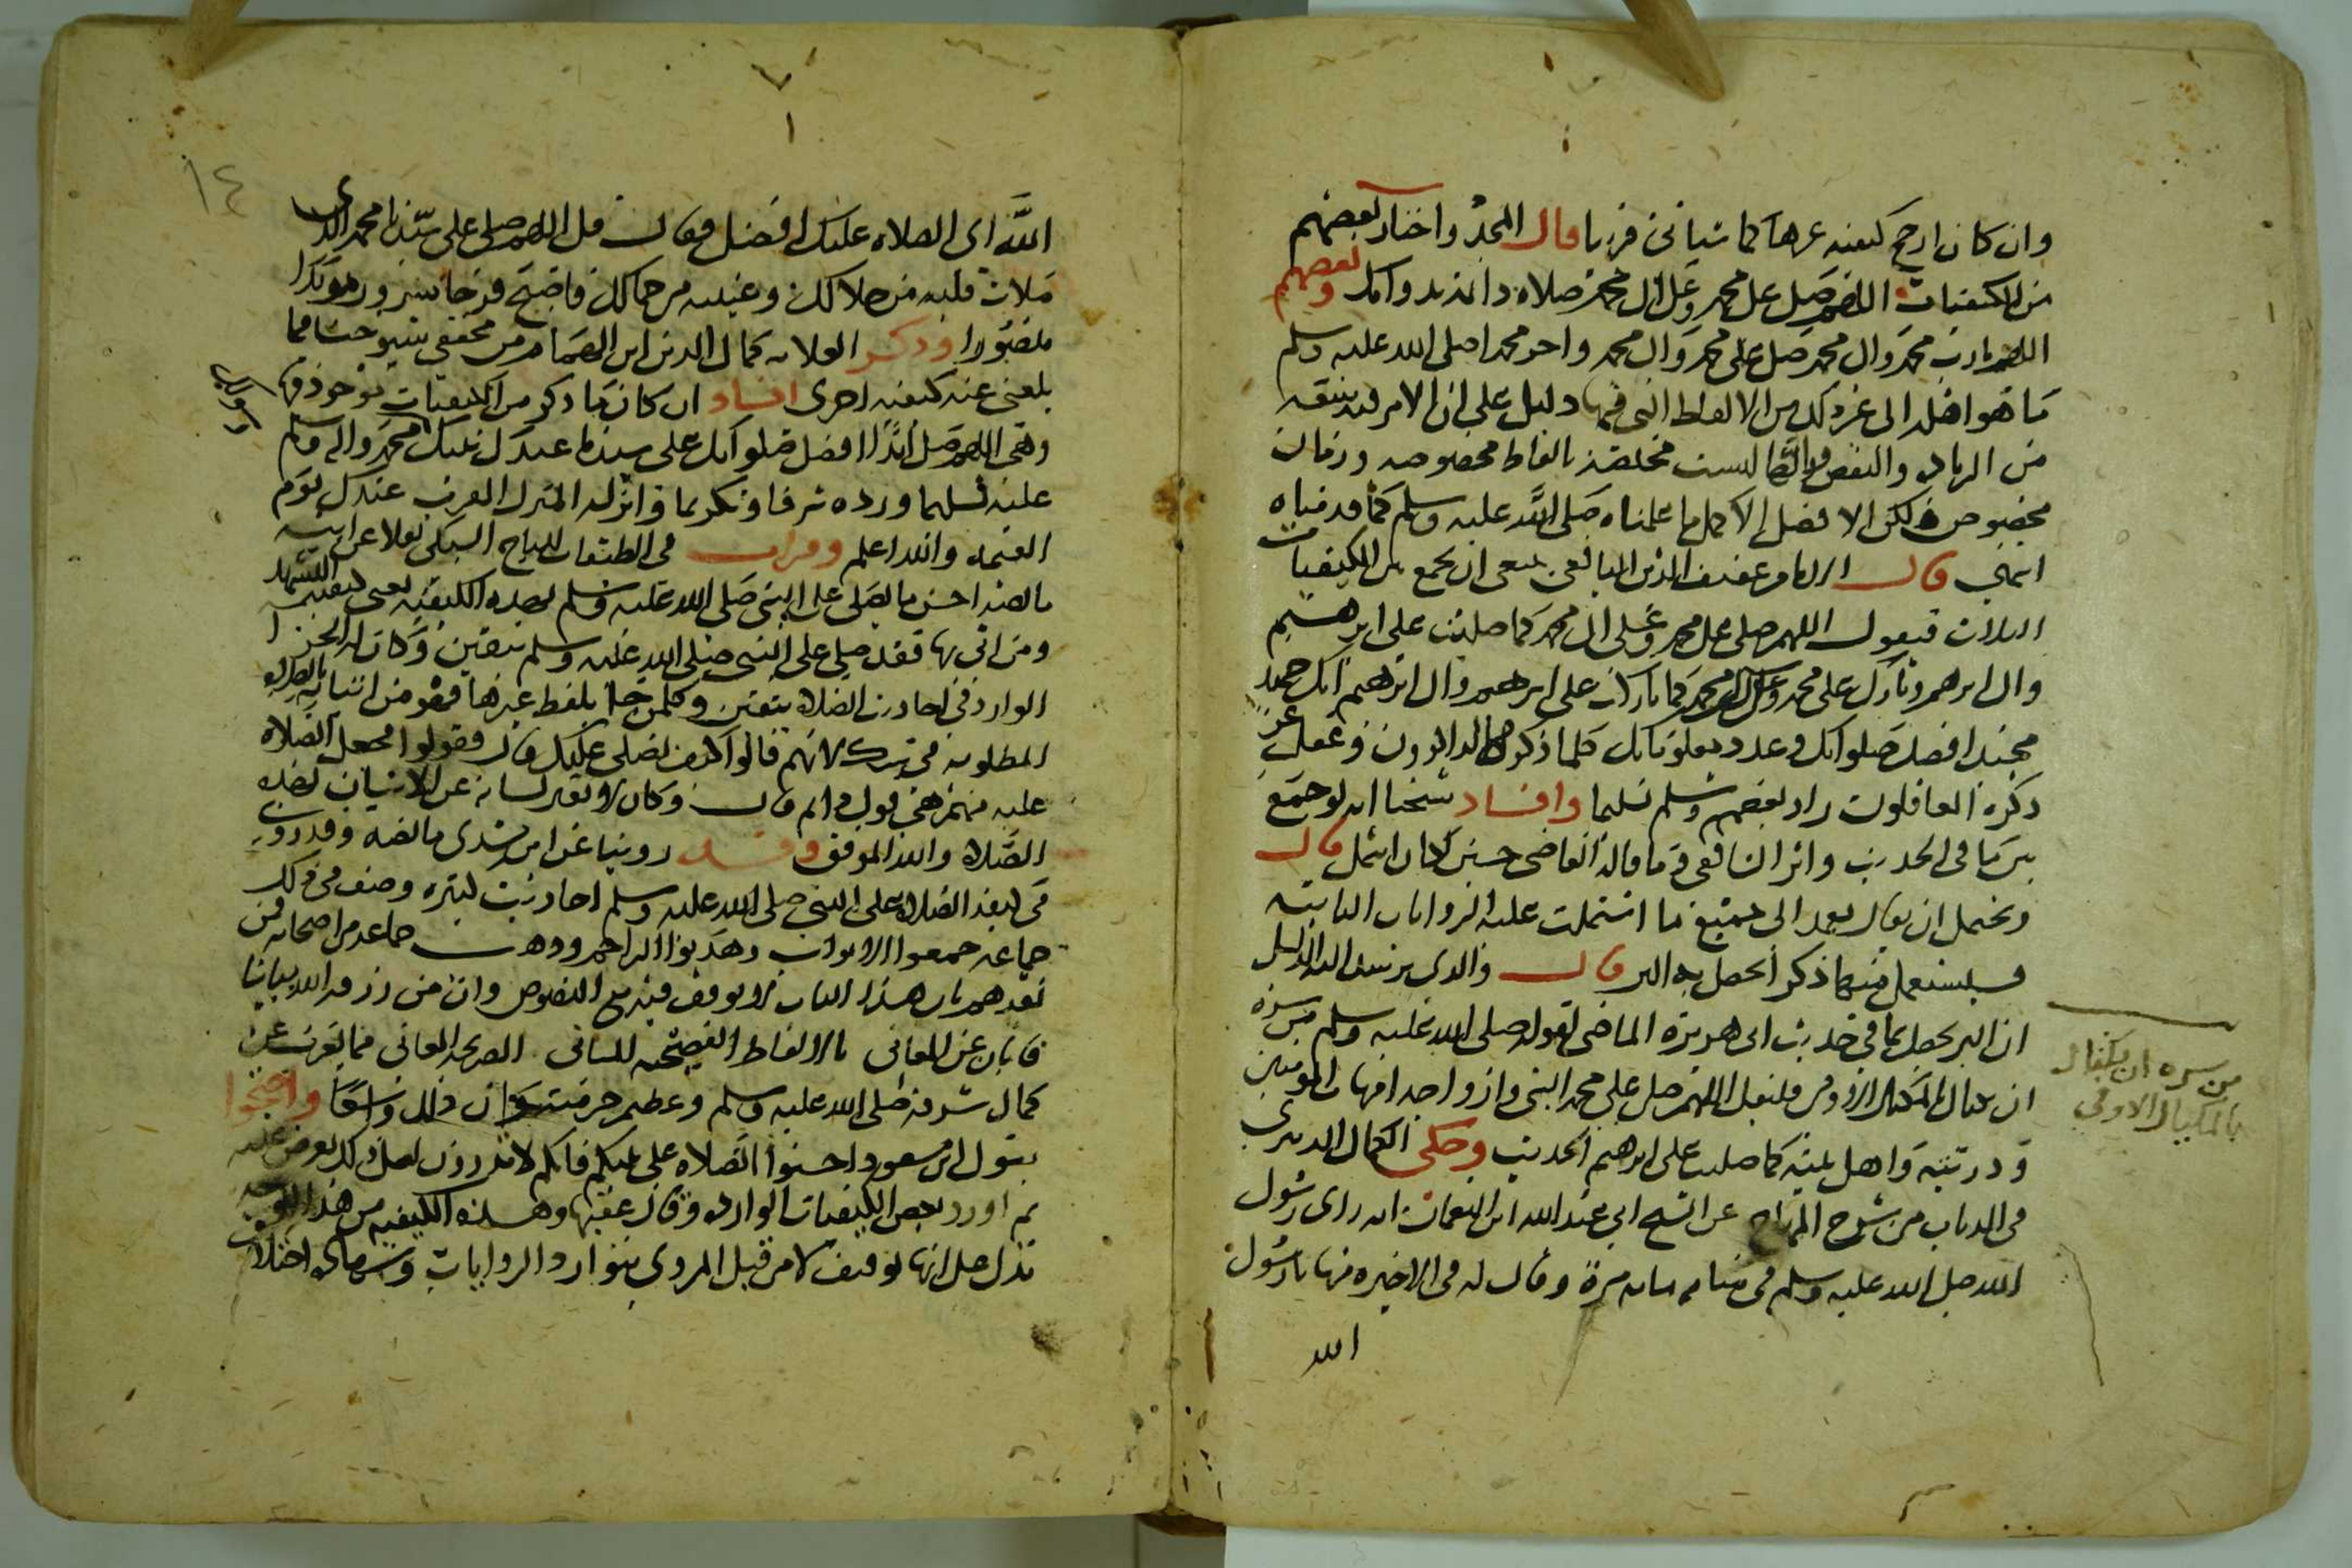 وان كان ارجح كيفيه غيرها كما سياتي قريبا قال المجد واختار بعضهم
من الكيفيات اللهم صل على محمد وعلى ال محمد صلاه دائمه بدوامك وبعضهم
اللهم يا رب محمد وال محمد صل على محمد وال محمد واجز محمدا صلى الله عليه وسلم
ما هو اهله الى غير ذلك من الالفاظ التي فيها دليل على ان الامر فيه سعه
من الزياده والنقص وانها ليست مختصة بالفاظ مخصوصه وزمان
مخصوص لكن الافضل الاكمل ما علمناه صلى الله عليه وسلم كما قدمناه
انتهى قال الامام عفيف الدين اليافعي ينبغي ان يجمع من الكيفيات
الثلاث فيقول اللهم صلي على محمد وعلى ال محمد كما صليت على ابرهيم
وال ابرهيم وبارك على محمد وعلى ال محمد كما باركت على ابرهيم وال ابرهيم انك حميد
مجيد افضل صلواتك وعدد معلوماتك كلما ذكرك الذاكرون وغفل عن
ذكره الغافلون زاد بعضهم وسلم تسليما وافاد شيخنا انه لو جمع
بين ما في الحديث واثر الشافعي وما قاله القاضي حسين لكان اشمل قال
ويحتمل ان يقال يعمد الى جميع ما اشتملت عليه الروايات الثابته
فيستعمل منها ذكرا يحصل به البر قال والذي يرشد اليه الدليل
ان البر يحصل بما في حديث ابي هريرة الماضي لقوله صلى الله عليه وسلم من سره
ان يكتال بالمكيال الاوفى فليقل اللهم صل على محمد النبي وازواجه امهات المومنين
وذريته واهل بيته كما صليت على ابرهيم الحديث وحكى الكمال الدميري
في الدباب من شرح المنهاج عن الشيخ ابي عبد الله ابن النعمان انه راى رسول
الله صلى الله عليه وسلم في منامه مايه مرة وقال له في الاخيره منها يا رسول
الله
من سره ان يكتال
بالمكيال الاوفى
١٤
الله اي الصلاه عليك افضل فقال قل اللهم صلي على سيدنا محمد الذي
ملات قلبه من جلالك وعينيه من جمالك فاصبح فرحا مسرورا مويدا
منصورا وذكر العلامه كمال الدين ابن الهمام من محققي شيوخنا مما
بلغني عنه كيفيه اخرى افاد ان كان ما ذكر من الكيفيات موجود فيها
وهي اللهم صل ابدا افضل صلواتك على سيدنا عبدك نبيك محمد واله وسلم
عليه تسليما وزده شرفا وتكريما وانزله المنزل المقرب عندك يوم
القيمه والله اعلم وقرات في الطبقات للتاج السبكي نقلا عن ابيه
ما نصه احسن ما يصلى على النبي صلى الله عليه وسلم بهذه الكيفيه يعني كيفية التشهد
ومن اتى بها فقد صلي على النبي صلى الله عليه وسلم بيقين وكان له الجزا
الوارد في احاديث الصلاه بيقين وكل من جا بلفظ غيرها فهو من اتيانه بالصلاه
المطلوبه في شك لانهم قالوا كيف نصلي عليك قال فقولوا فجعل الصلاه
عليه منهم هي قول ذا ثم قال وكان لا يفتر لسانه عن الاتيان بهذه
الصلاه والله الموفق وقد روينا عن ابن مسدي ما نصه وقد روي
في كيفية الصلاه على النبي صلى الله عليه وسلم احاديث كثيره وصنف في ذلك
جماعه جمعوا الابواب وهذبوا التراجم وذهب جماعه من اصحابه فمن
بعدهم بان هذا الباب لا يوقف فيه مع النصوص وان من رزقه الله بيانا
فابان عن المعاني بالالفاظ الفصيحه المباني الصريحه المعاني مما يعرب عن
كمال شرفه صلى الله عليه وسلم وعظيم حرمته كان ذلك واسعا واحتجوا
بقول ابن مسعود احسنوا الصلاه على نبيكم فانكم لا تدرون لعل ذلك يعرض عليه
ثم اورد بعض الكيفيات الوارده وقال عقبها وهذه الكيفيه من هذا الوجه
تدل على انها توقيف لا من قبل المروي بتوارد الروايات